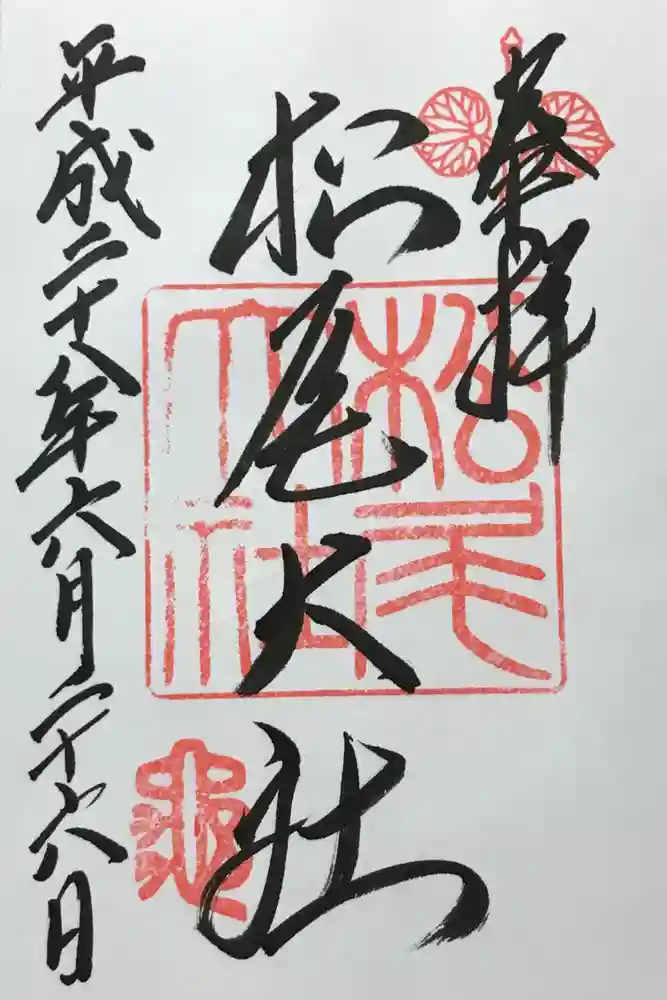 奉拝
松尾大社
平成二十八年六月二十六日
松尾大社